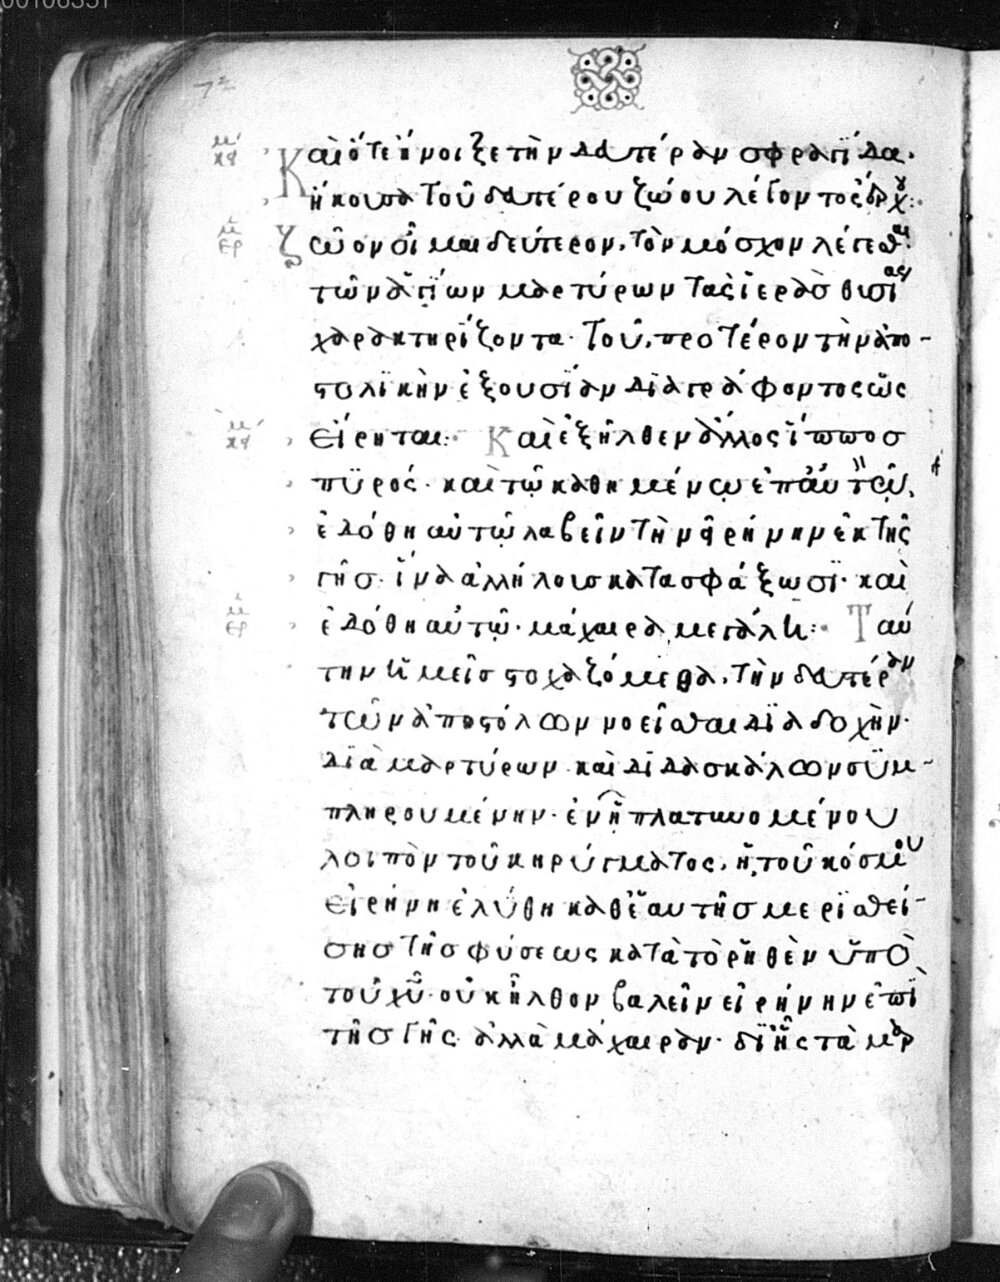 00106351
72
κε΄ Καὶ ὅτε ἤνοιξε τὴν δευτέραν σφραγῖδα·
ἤκουσα τοῦ δευτέρου ζώου λέγοντος ἔρχου:·
ἑρ ζῶον οἶμαι δεύτερον, τὸν μόσχον λέγεσθαι
τῶν ἁγίων μαρτύρων τὰς ἱερὰς θυσίας
χαρακτηρίζοντα· τοῦ, προτέρου τὴν ἀπο-
στολικὴν ἐξουσίαν διαγράφοντος ὡς
εἴρηται:· Καὶ ἐξῆλθεν ἄλλος ἵππος
πυρός· καὶ τῷ καθημένῳ ἐπ' αὐτῷ,
ἐδόθη αὐτῷ λαβεῖν τὴν εἰρήνην ἐκ τῆς
γῆς· ἵνα ἀλλήλους κατασφάξωσι· καὶ
ἐδόθη αὐτῷ· μάχαιρα μεγάλη:· Ταύ
την ἡμεῖς στοχαζόμεθα, τὴν δευτέραν
τῶν ἀποστόλων νοεῖσθαι διαδοχὴν·
διὰ μαρτύρων καὶ διδασκάλων συμ-
πληρουμένην· ἐν ᾗ πλατυνομένου
λοιπὸν τοῦ κηρύγματος, ἡ τοῦ κόσμου
εἰρήνη ἐλύθη καθ' ἑαυτῆς μερισθεί-
σης τῆς φύσεως κατὰ τὸ ῥηθὲν ὑπὸ
τοῦ χῦ· οὐκ ἦλθον βαλεῖν εἰρήνην ἐπὶ
τῆς γῆς· ἀλλὰ μάχαιραν· δι' ἧς τὰ μαρ